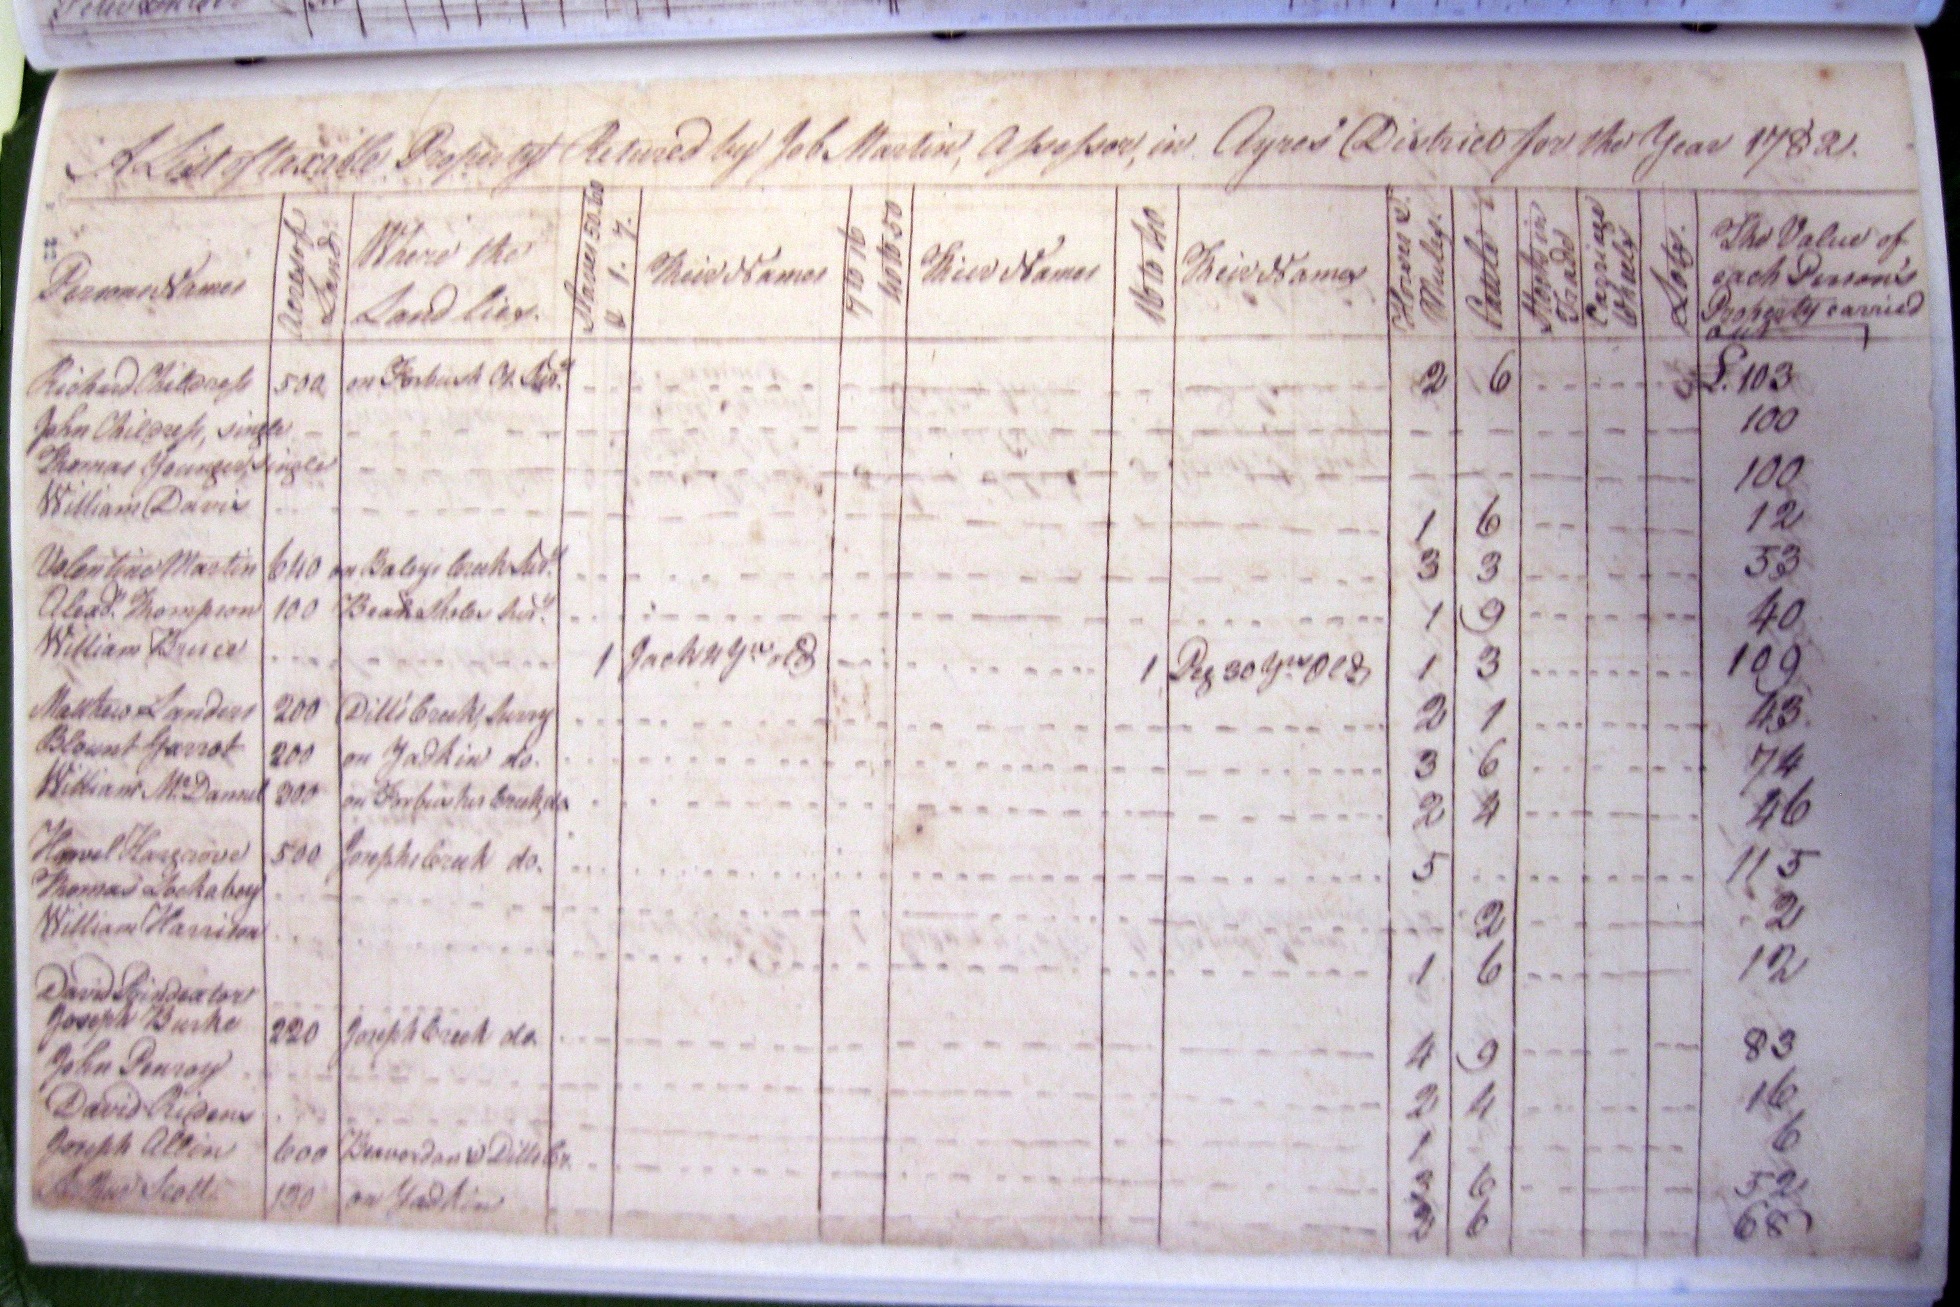 A List of taxable Property Retured by Job Martin, Assessor, in Ayres' District for the Year 1782.
Persons Names | Acres of Land. | Where the Land lies. | Slaves 50.60 & 1. 7. | Their Names | 7 to 16 40 to 50 | Their Names | 16 to 40 | Their Names | Horses & Mules. | Cattle | Stock in Trade | Carriage Wheels | Lots. | The Value of each Person's Property carried out
Richard Childress 500 on Forbush Cr. 2 6 £.103
John Childress, single 100
Thomas Younger, single 100
William Davis 1 6 12
Valentine Martin 640 on Creek 3 3 53
Alexdr. Thompson 100 1 9 40
William Bruce 1 Jack 4 Yrs old 1 Peg 30 Yrs Old 1 3 109
Matthew Landers 200 Dills Creek, Surry 2 1 43.
Blount Garrot 200 on Yadkin do. 3 6 74
William McDannel 300 on Creek do 2 4 46
Hargrove 500 Josephs Creek do. 5 115
Thomas Lockabey 2 2
William Harrison 1 6 12
David Poindexter
Joseph Burke 220 Joseph Creek do. 4 9 83
John Penroy 2 4 16
David Ridens 1 6
Joseph Allin 600 & Dills Cr. 6 52
Scott 130 on Yadkin 6 68